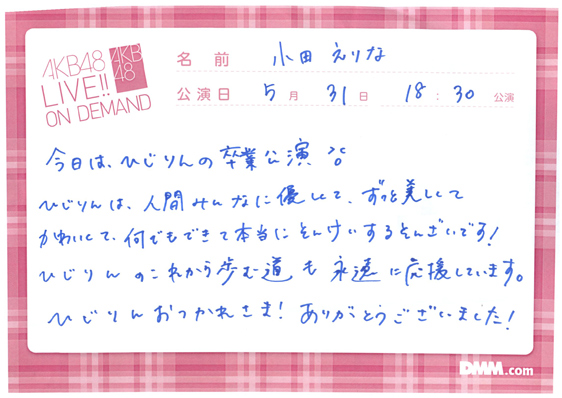 AKB48
LIVE!!
ON DEMAND
AKB
48
名前 小田えりな
公演日 5月31日 18:30 公演
今日は、ひじりんの卒業公演
ひじりんは、人間みんなに優しくて、ずっと美しくて
かわいくて、何でもできて本当にそんけいするそんざいです!
ひじりんのこれから歩む道も永遠に応援しています。
ひじりんおつかれさま!ありがとうございました!
DMM.com